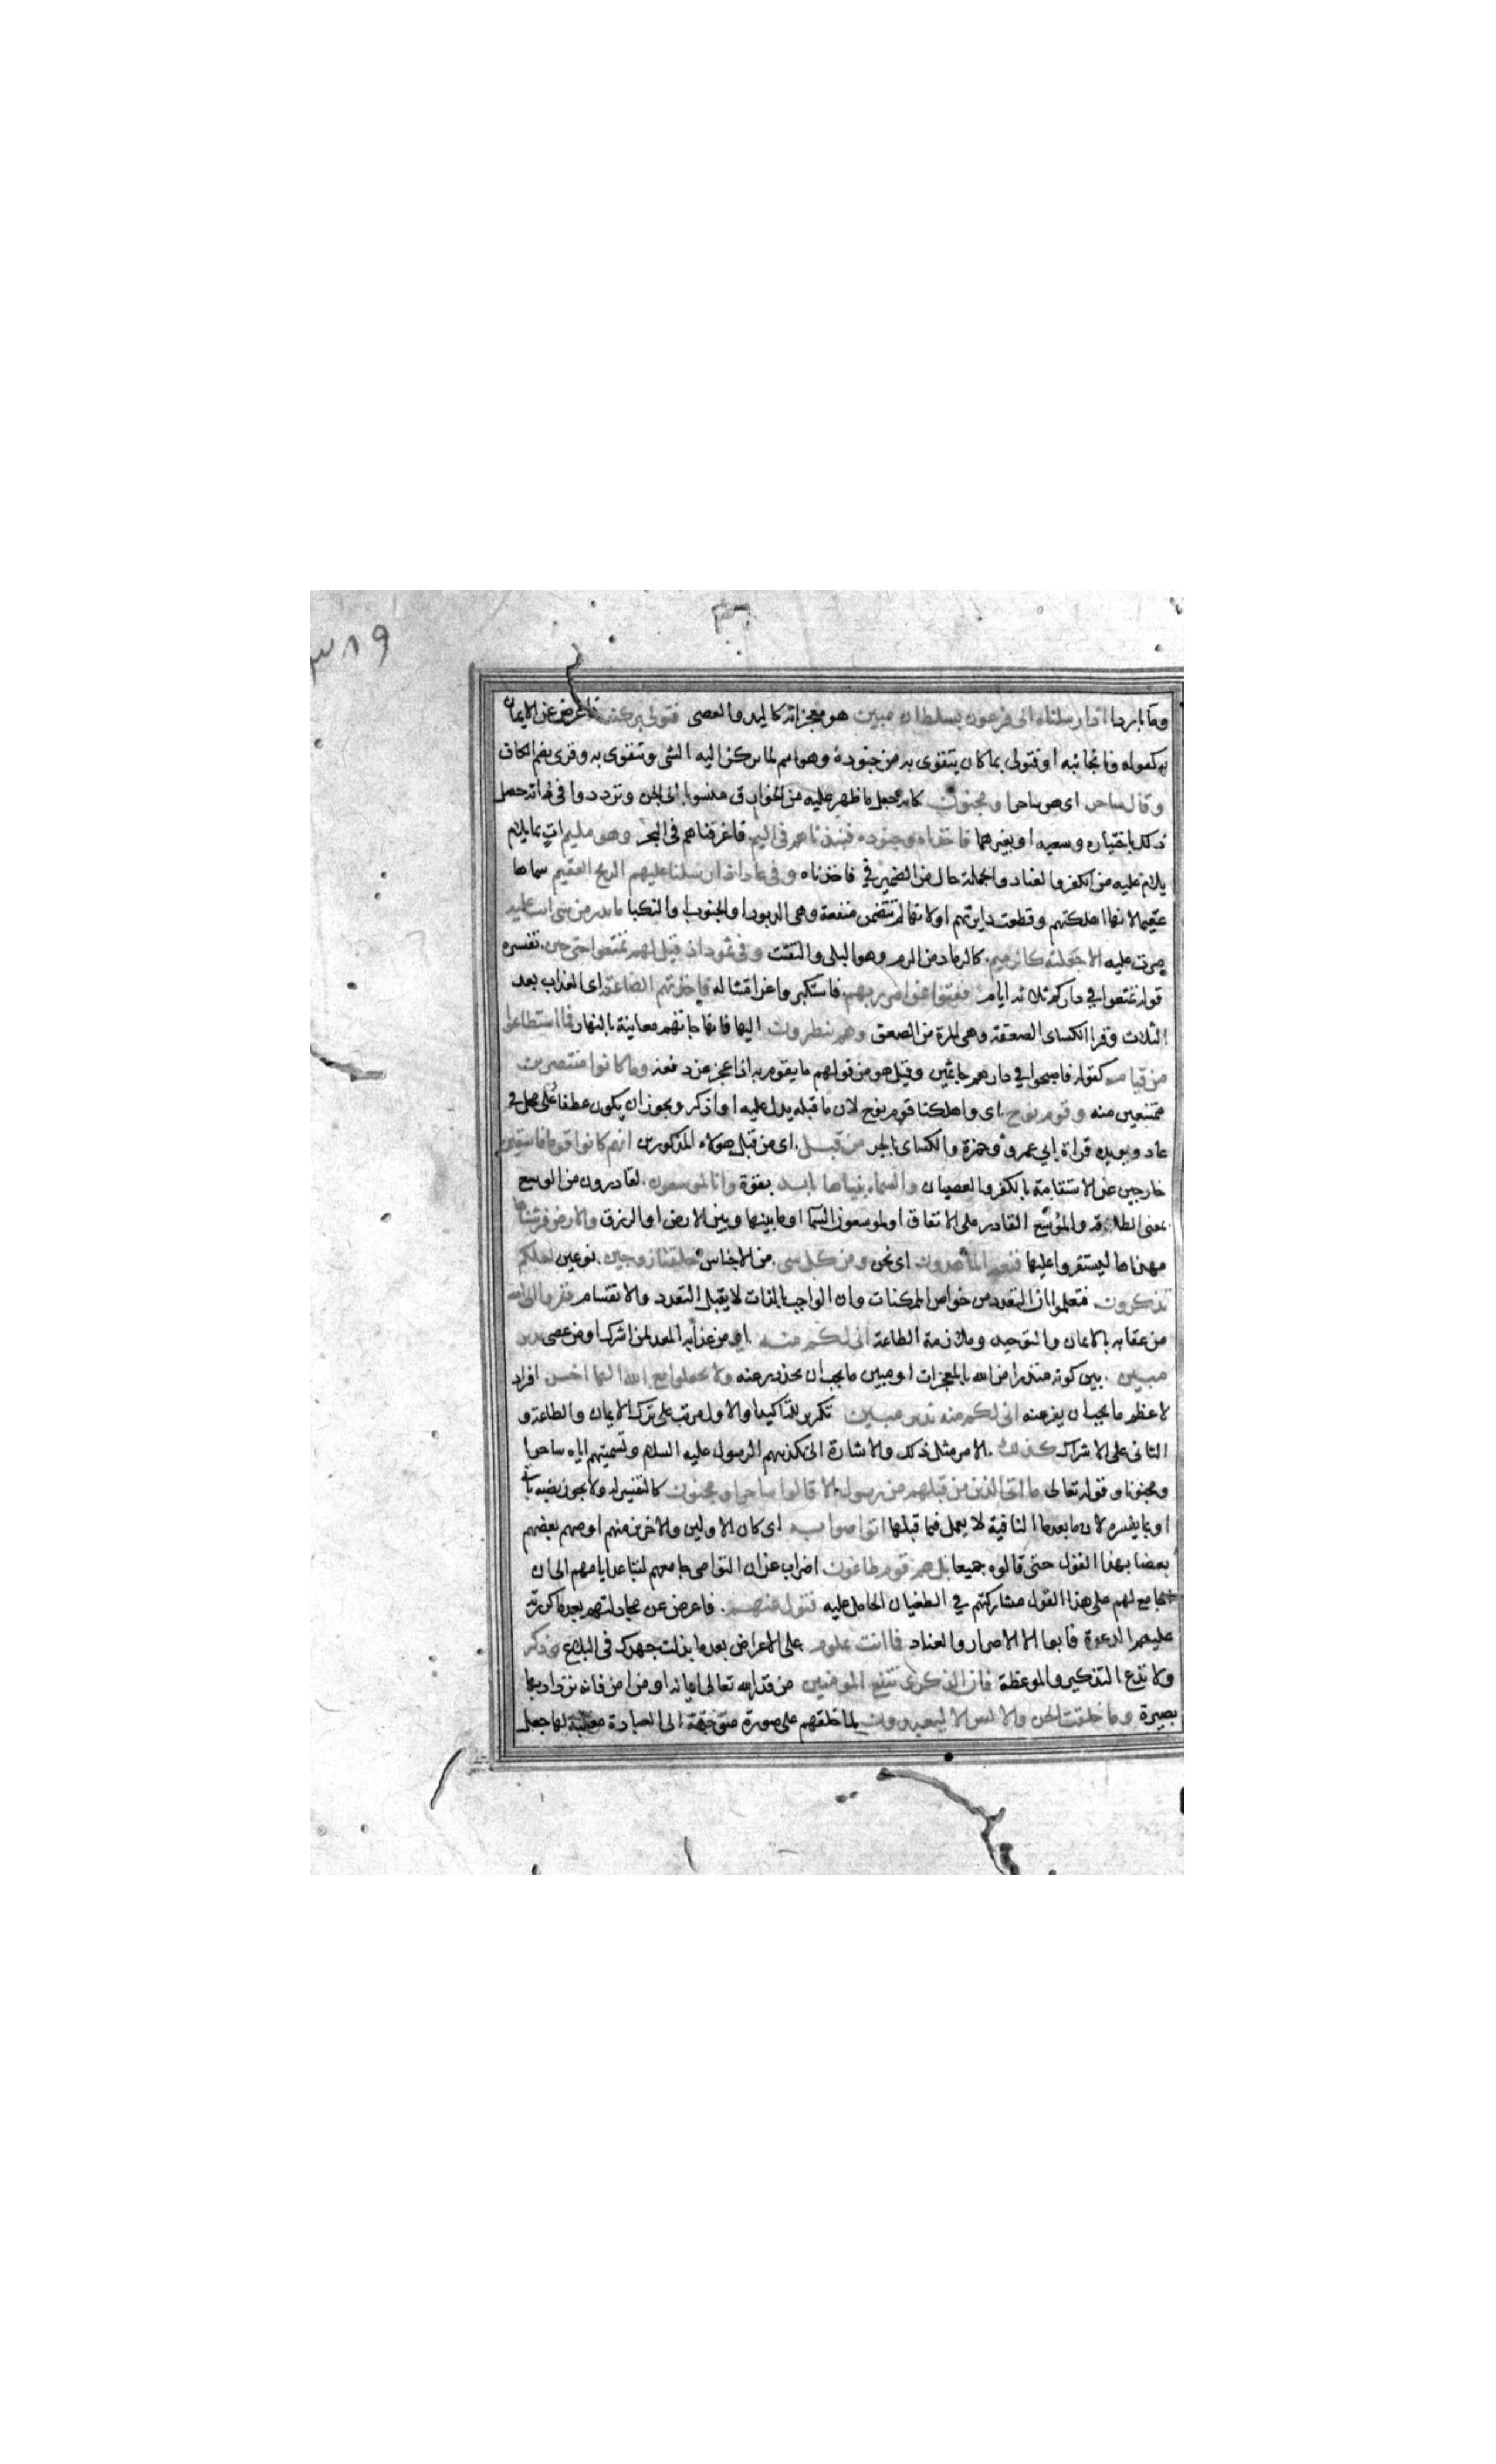 ٣٨٩
وما باردا اذ ارسلناه الى فرعون بسلطان مبين هو معجزاته كاليد والعصى فتولى بركنه فاعرض عن الايمان
به كقوله ونأى بجانبه او فتولى بما كان يتقوى به من جنوده وهو اسم لما يركن اليه الشى ويتقوى به وقرى بضم الكاف
وقال ساحر اى هو ساحر او مجنون كانه جعل ما ظهر عليه من الخوارق منسوبا الى الجن وتردد وا فى انه حصل
ذلك باختياره وسعيه او بغيرهما فاخذناه وجنوده فنبذناهم فى اليم فاغرقناهم فى البحر وهو مليم ات بما يلام
يلام عليه من الكفر والعناد والجملة حال من الضمير فى فاخذناه وفى عاد اذ ارسلنا عليهم الريح العقيم سماها
عقيما لانها اهلكتهم وقطعت دابرتهم او لانها لم تتضمن منفعة وهى الدبور او الجنوب او النكبا ما تذر من شى اتت عليه
مرت عليه الا جعلته كالرميم كالرماد من الرم وهو البلى والتفتت وفى ثمود اذ قيل لهم تمتعوا حتى حين تفسره
قوله تمتعوا في داركم ثلاثه ايام فعتوا عن امر ربهم فاستكبروا عن امتثاله فاخذتهم الصاعقة اى العذاب بعد
الثلاث وقرا الكساى الصعقة وهى المرة من الصعق وهم ينظرون اليها فانها جاتهم معاينة بالنهار فما استطاعوا
من قيام كقوله فاصبحوا في دارهم جاثمين وقيل هو من قولهم ما يقوم به اذا عجز عن دفعه وما كانوا منتصرين
ممتنعين منه وقوم نوح اى واهلكنا قوم نوح لان ما قبله يدل عليه او اذكر ويجوز ان يكون عطفا على محل فى
عاد ويويده قراة ابي عمرو وحمزة والكساى بالجر من قبل اى من قبل هولاء المذكورين انهم كانوا قوما فاسقين
خارجين عن الاستقامة بالكفر والعصيان والسماء بنيناها بايد بقوة وانا لموسعون لقادرون من الوسع
بمعنى الطاقة والموسع القادر على الانفاق او لموسعون السما او ما بينها وبين الارض او الرزق والارض فرشناها
مهدناها ليستقروا عليها فنعم الماهدون اى نحن ومن كل شى من الاجناس خلقنا زوجين نوعين لعلكم
تذكرون فتعلموا ان التعدد من خواص الممكنات وان الواجب بالذات لا يقبل التعدد والانقسام ففروا الى الله
من عقابه بالايمان والتوحيد وملازمة الطاعة انى لكم منه اى من عذابه المعد لمن اشرك او من عصى نذير
مبين بين كونه منذرا من الله بالمعجزات او مبين ما يجب ان يحذر عنه ولا تجعلوا مع الله الها اخر افراد
لاعظم ما يجب ان يفر عنه انى لكم منه نذير مبين تكرير للتاكيد او الاول مرتب على ترك الايمان والطاعة و
الثانى على الاشراك كذلك الامر مثل ذلك والاشارة الى تكذيبهم الرسول عليه السلام وتسميتهم اياه ساحرا
ومجنونا وقوله تعالى ما اتى الذين من قبلهم من رسول الا قالوا ساحر او مجنون كالتفسير له ولا يجوز نصبه باتى
او بما يفسره لان ما بعد ما النافية لا يعمل فيما قبلها اتواصوا به اى كان الاولين والاخرين منهم اوصى بعضهم
بعضا بهذا القول حتى قالوه جميعا بل هم قوم طاغون اضراب عن ان التواصى جامعهم لتباعد ايامهم الى ان
الجامع لهم على هذا القول مشاركتهم في الطغيان الحامل عليه فتول عنهم فاعرض عن مجادلتهم بعد ما كررت
عليهم الدعوة فابوا الا الاصرار والعناد فما انت بملوم على الاعراض بعد ما بذلت جهدك فى البلاغ وذكر
ولا تدع التذكير والموعظة فان الذكرى تنفع المومنين من قدر الله تعالى ايمانه او من امن فانه تزداد بها
بصيرة وما خلقت الجن والانس الا ليعبدون لما خلقهم على صورة متوجهة الى العبادة مغلبة لها جعل